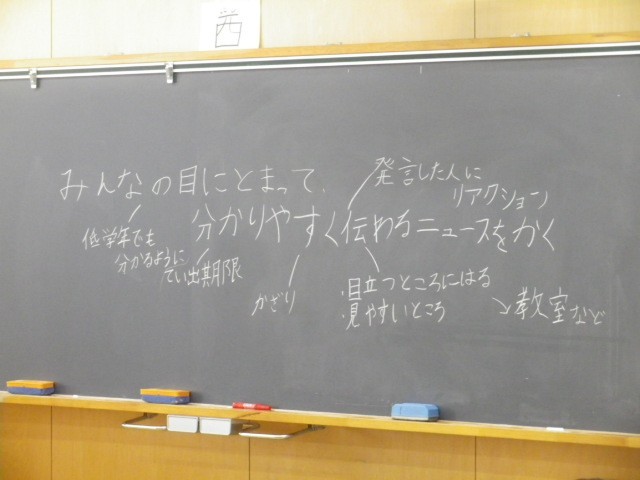 西
みんなの目にとまって、
分かりやすく伝わるニュースをかく
発言した人に
リアクション
低学年でも
分かるように
てい出期限
かざり
・目立つところにはる
・見やすいところ
↘教室など